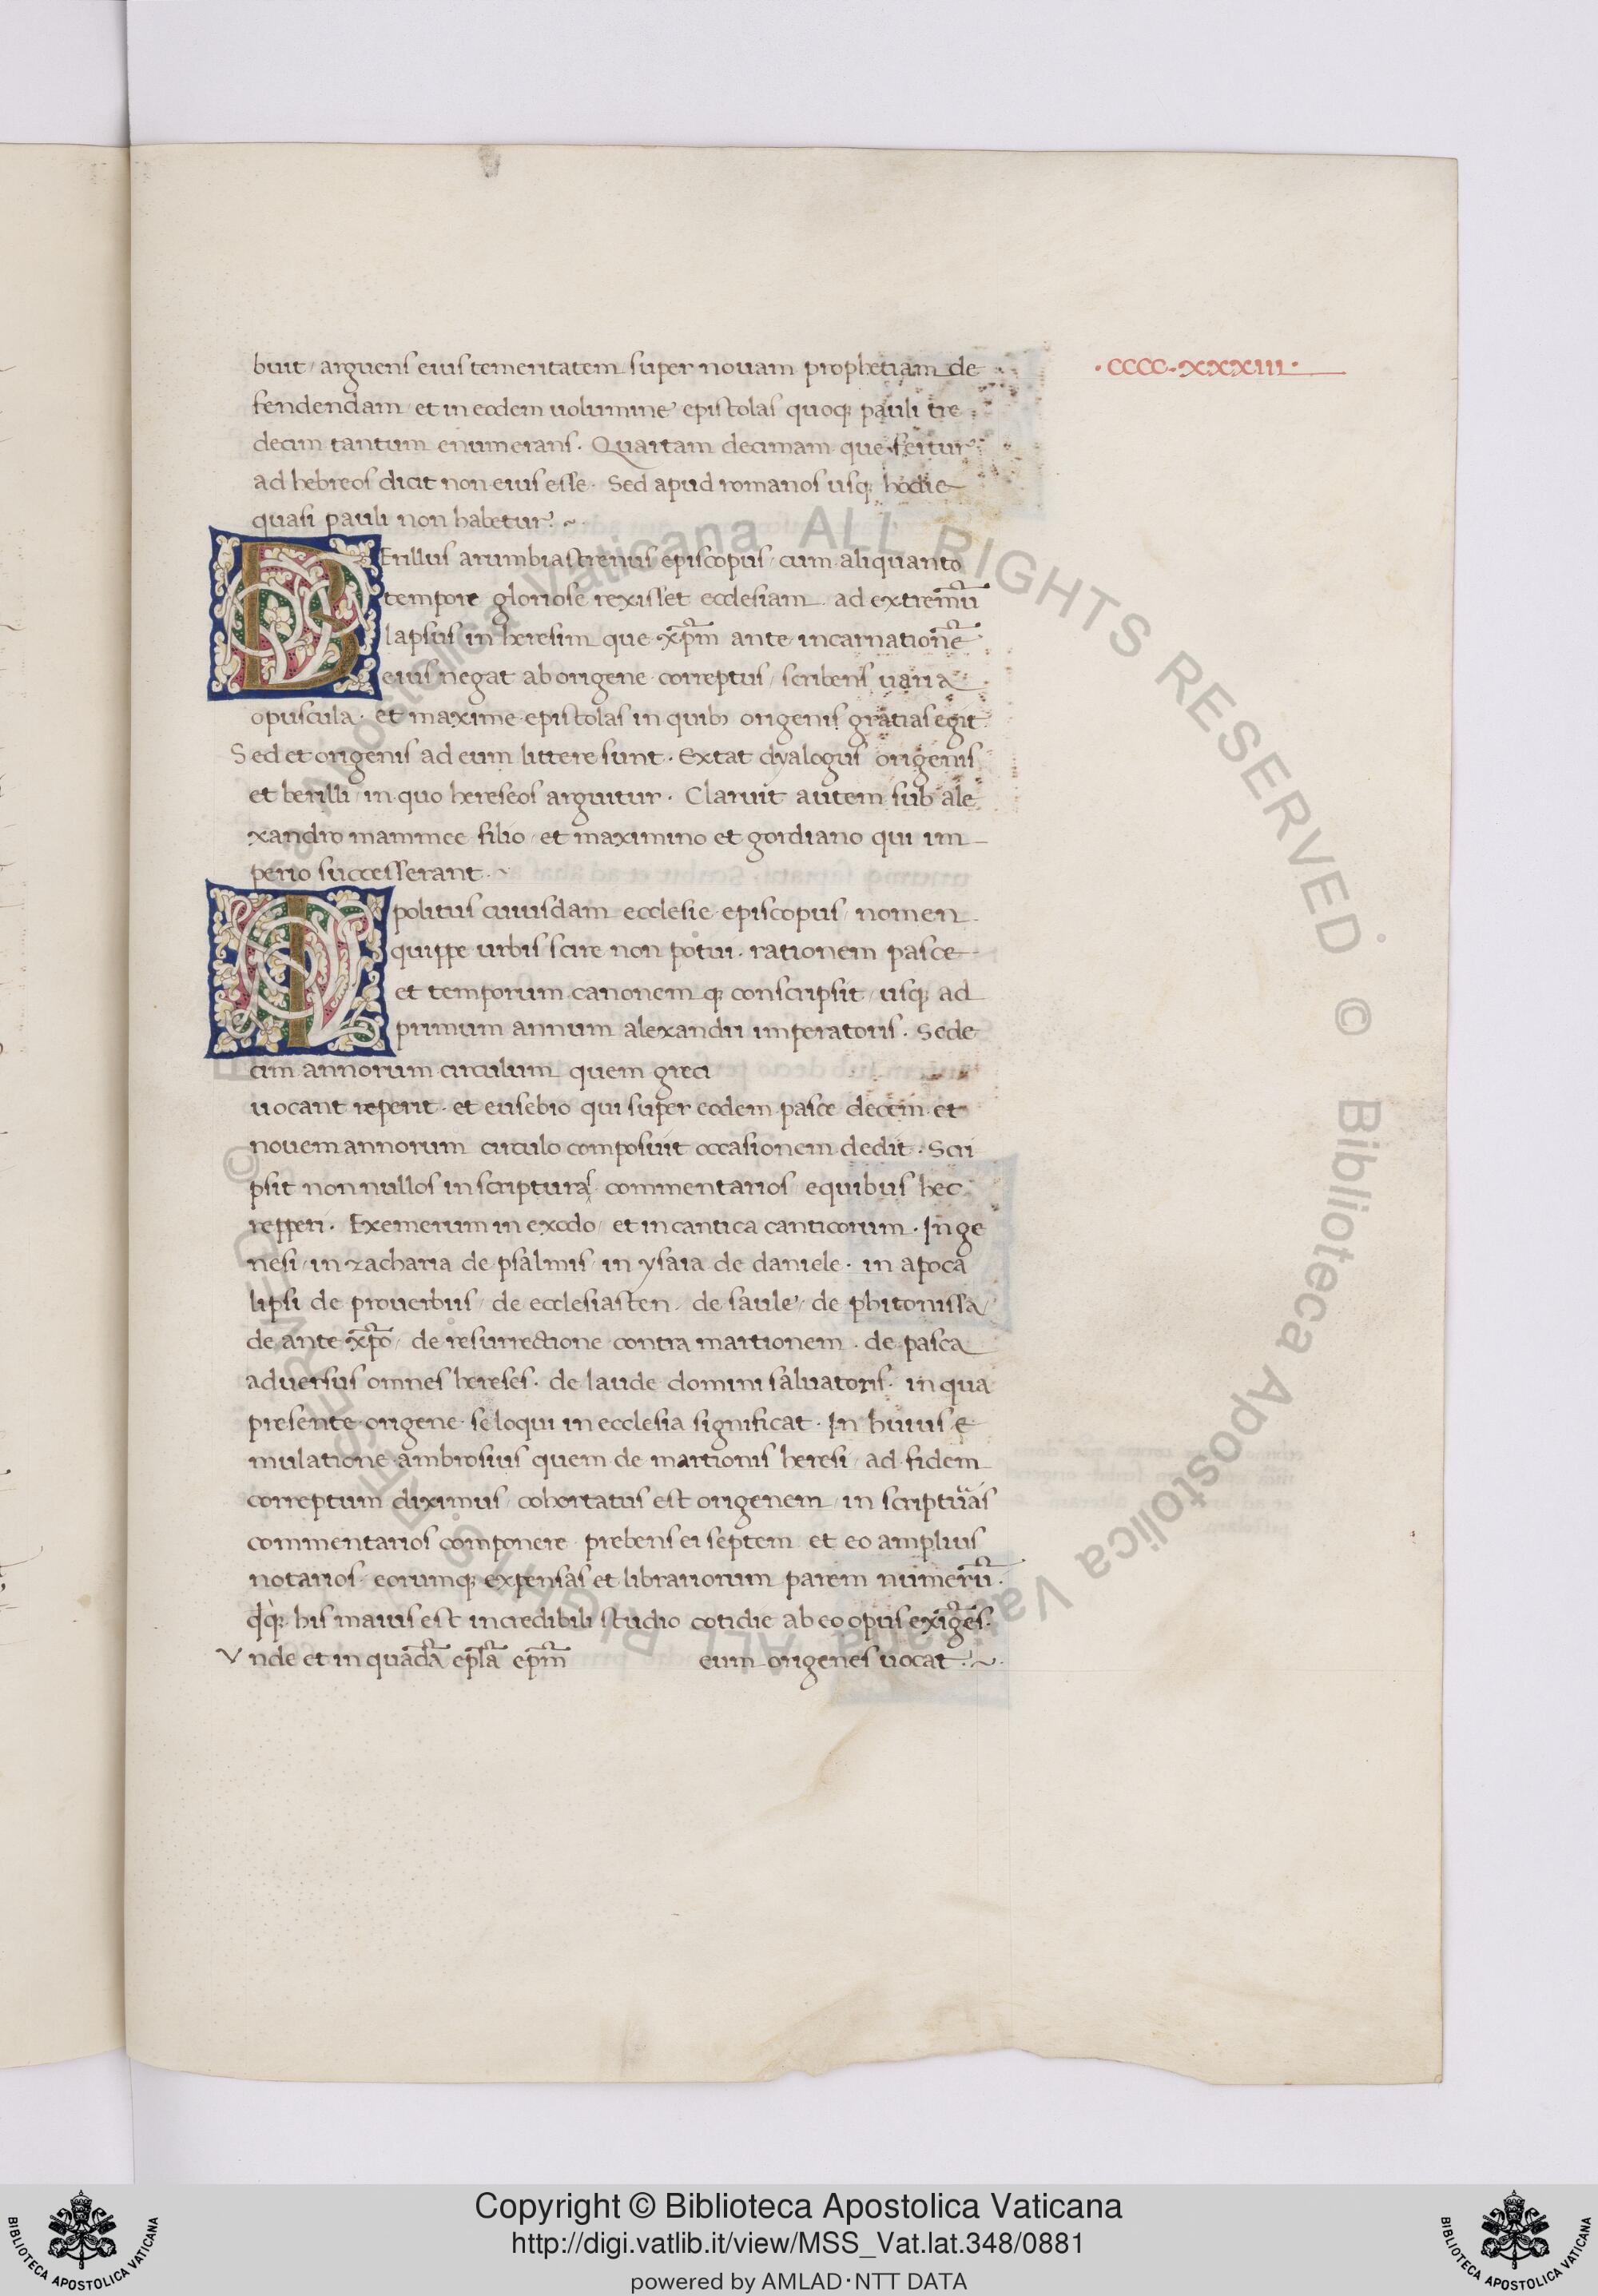 · CCCC · XXXIII ·
buit / arguens eius temeritatem super nouam prophetiam de
fendendam / et in eodem uolumine epistolas quoq; pauli tre
decim tantum enumerans · Quartam decimam que fertur
ad hebreos dicit non eius esse · Sed apud romanos usq; hodie
quasi pauli non habetur · ~
BErillus arumbiastrenus episcopus / cum aliquanto
tempore gloriose rexisset ecclesiam · ad extremũ
lapsus in heresim que xp̃m ante incarnationẽ
eius negat ab origene correptus / scribens uaria
opuscula · et maxime epistolas in quib; origenis gratias egit
Sed et origenis ad eum littere sunt · Extat dyalogus origenis
et berilli / in quo hereseos arguitur · Claruit autem sub ale
xandro mammee filio · et maximino et gordiano qui im
perio successerant · ~
Ipolitus cuiusdam ecclesie episcopus / nomen
quippe urbis scire non potui · rationem pasce
et temporum canonem q; conscripsit / usq; ad
primum annum alexandri imperatoris · Sede
cim annorum circulum quem greci
uocant reperit · et eusebio qui super eodem pasce decem et
nouem annorum circulo composuit occasionem dedit · Scri
psit nonnullos in scripturas commentarios equibus hec
repperi · Exemerum in exodo / et in cantica canticorum · In ge
nesi / in zacharia de psalmis / in ysaia de daniele · in apoca
lipsi de prouerbiis / de ecclesiasten · de saule / de phitonissa /
de ante xp̃o / de resurrectione contra martionem · de pasca
aduersus omnes hereses · de laude domini saluatoris · in qua
presente origene se loqui in ecclesia significat · In huius e
mulatione ambrosius quem de martionis heresi / ad fidem
correptum diximus / cohortatus est origenem / in scripturas
commentarios componere prebens ei septem et eo amplius
notarios eorumq; expensas et librariorum parem numerũ ·
q̃q; his maius est incredibili studio cotidie ab eo opus exigẽs ·
Vnde et in quadã ep̃la ep̃m eum origenes uocat · ~
Copyright © Biblioteca Apostolica Vaticana
http://digi.vatlib.it/view/MSS_Vat.lat.348/0881
powered by AMLAD·NTT DATA
BIBLIOTECA APOSTOLICA VATICANA
BIBLIOTECA APOSTOLICA VATICANA
© Biblioteca Apostolica Vaticana ALL RIGHTS RESERVED © Biblioteca Apostolica Vaticana ALL RIGHTS RESERVED